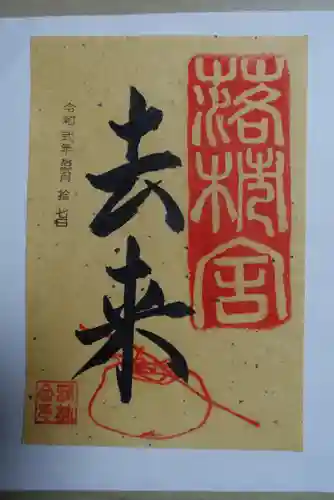 落柿舎
去来
令和 弐年 月 拾 七日